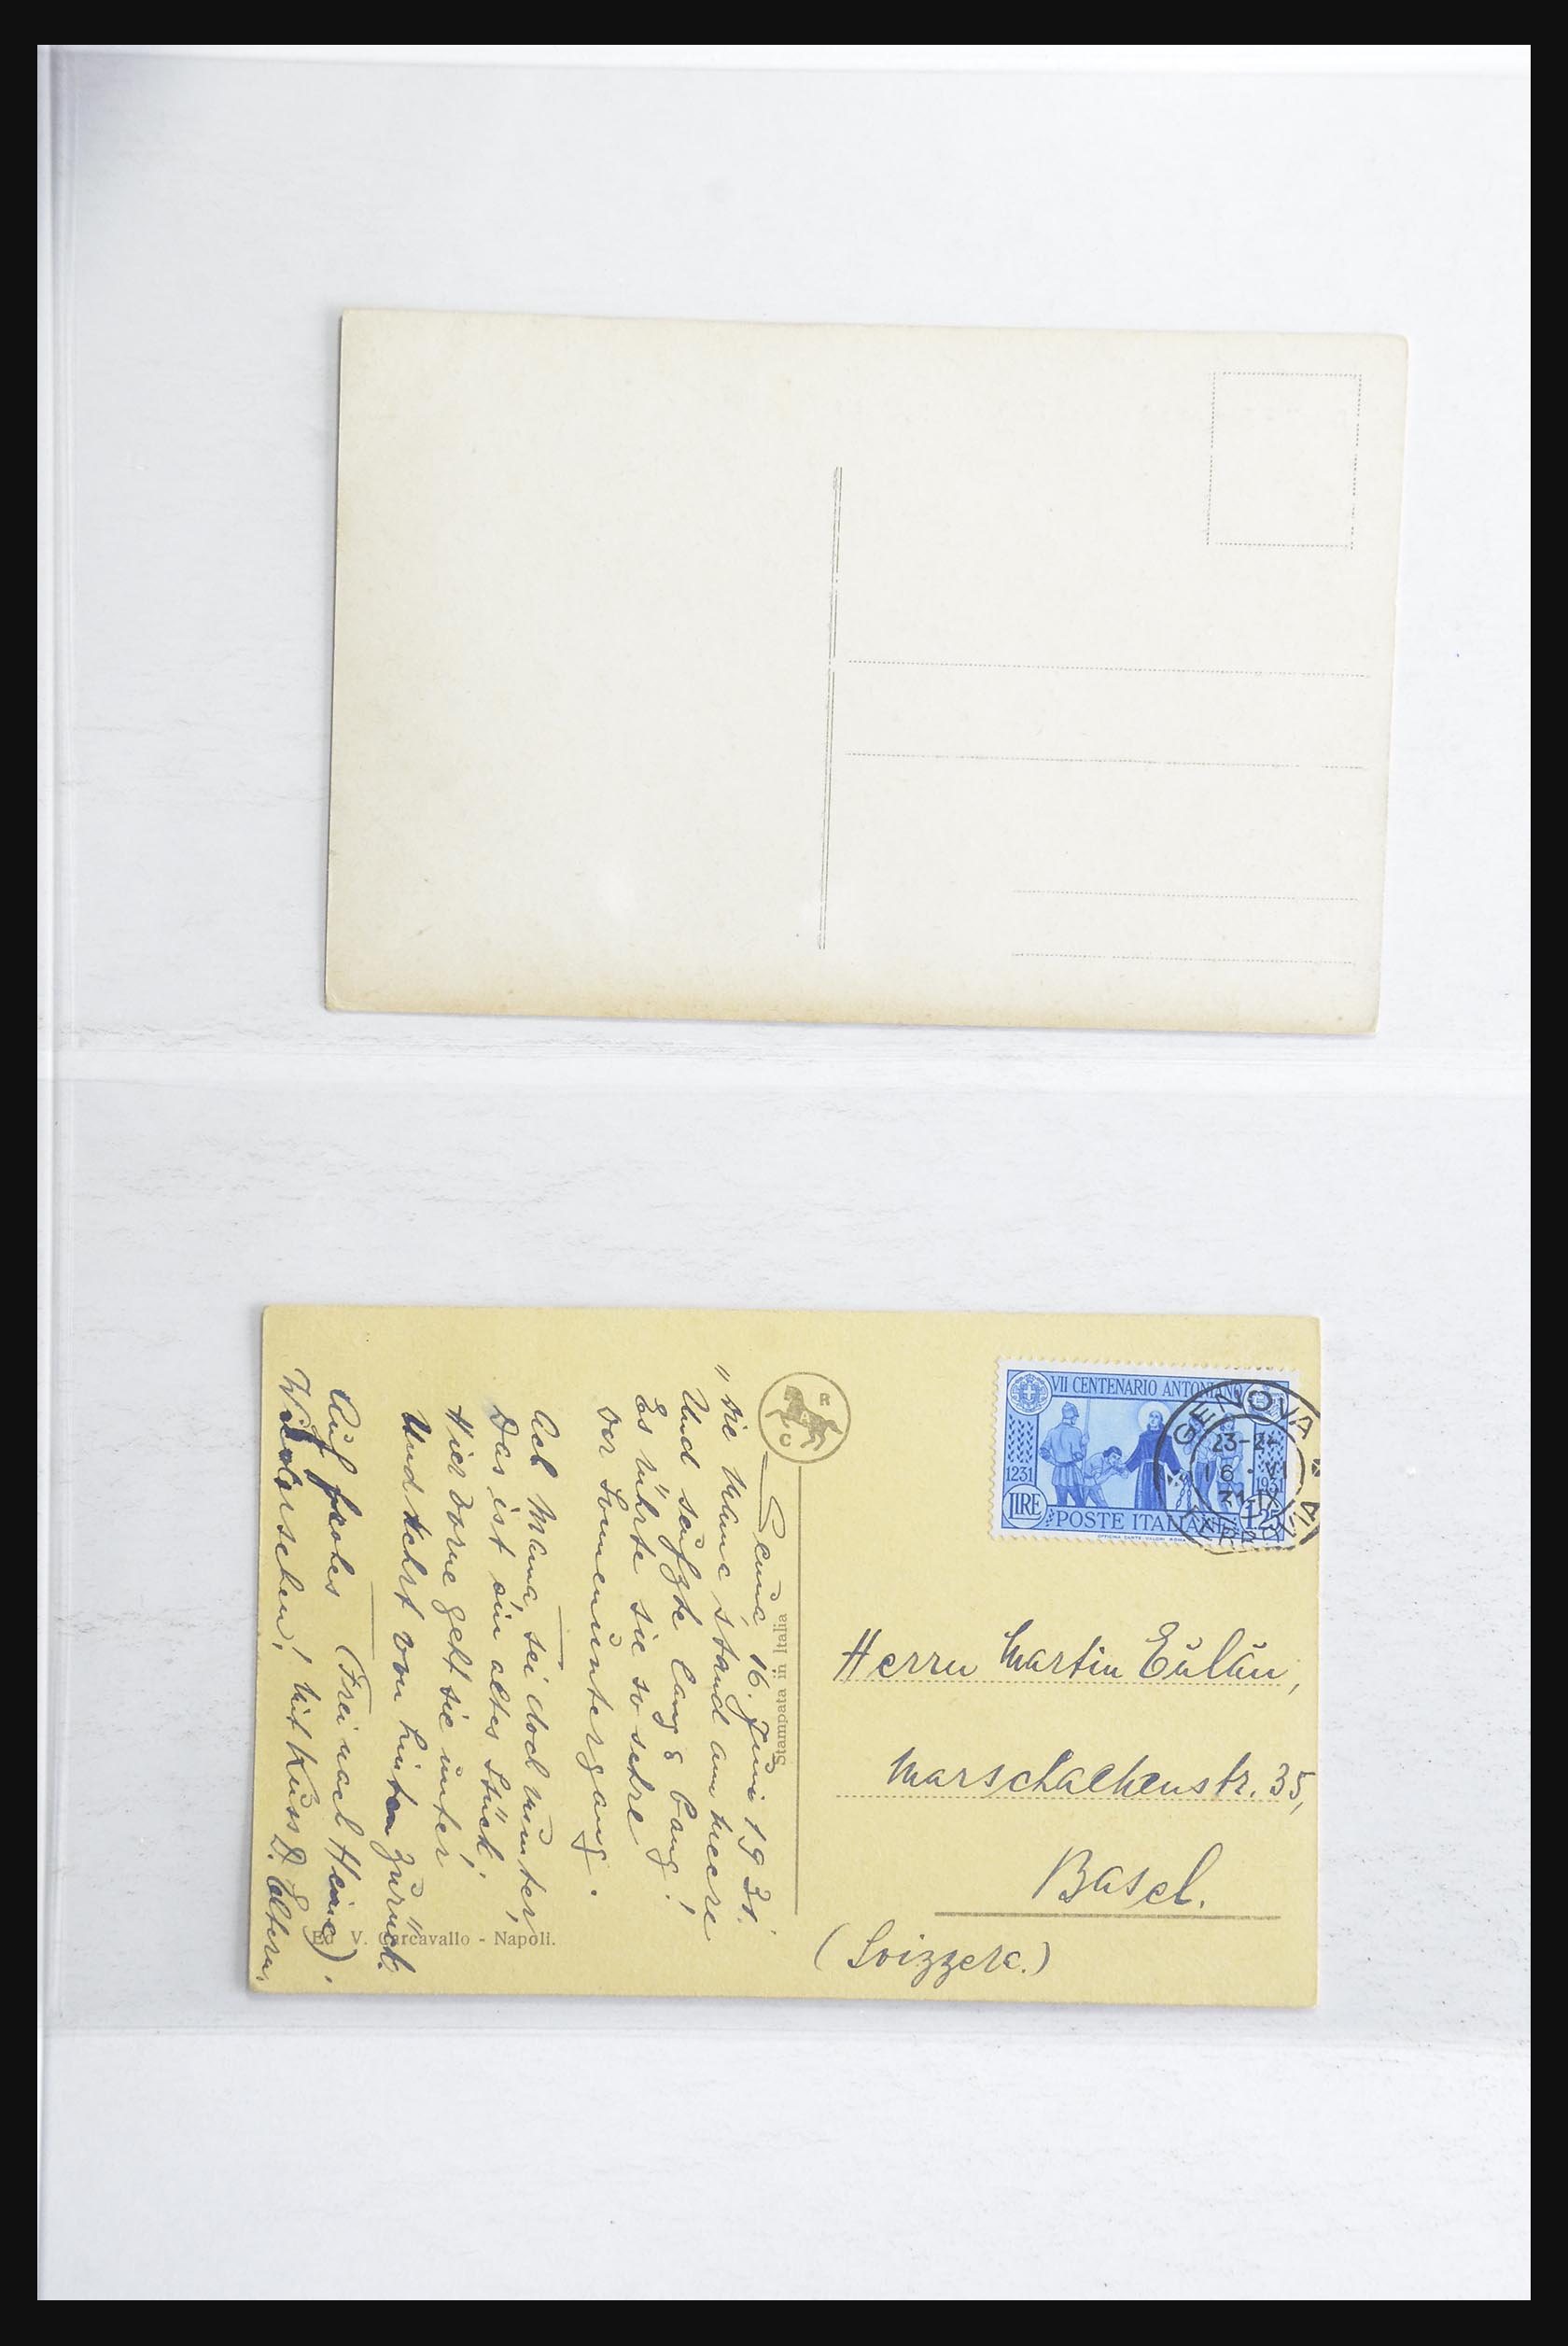 VII CENTENARIO ANTONIANO
1231
1931
LIRE
1,25
POSTE ITALIANE
GENOVA
23-24
16 · VI
31 IX
Genua, 16. Juni 1931.
"Die Mama stand am Meere
Und seufzte lang & bang!
Es rührte sie so sehre
Der Sonnenuntergang.
Ach Mama sei doch munter,
Das ist ein altes Stück;
Hier vorne geht sie unter
Und kehrt von hinten zurück.
(Frei nach Heine).
Auf frohes
Wiedersehen! Mit Kuss D. Eltern.
Stampata in Italia
Ed. V. Carcavallo - Napoli.
Herrn Martin Eulau,
Marschalkenstr. 35,
Basel.
(Svizzera.)